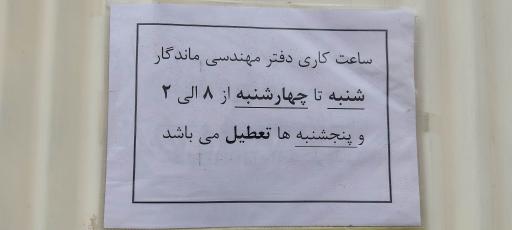 ساعت کاری دفتر مهندسی ماندگار
شنبه تا چهارشنبه از ۸ الی ۲
و پنجشنبه ها تعطیل می باشد